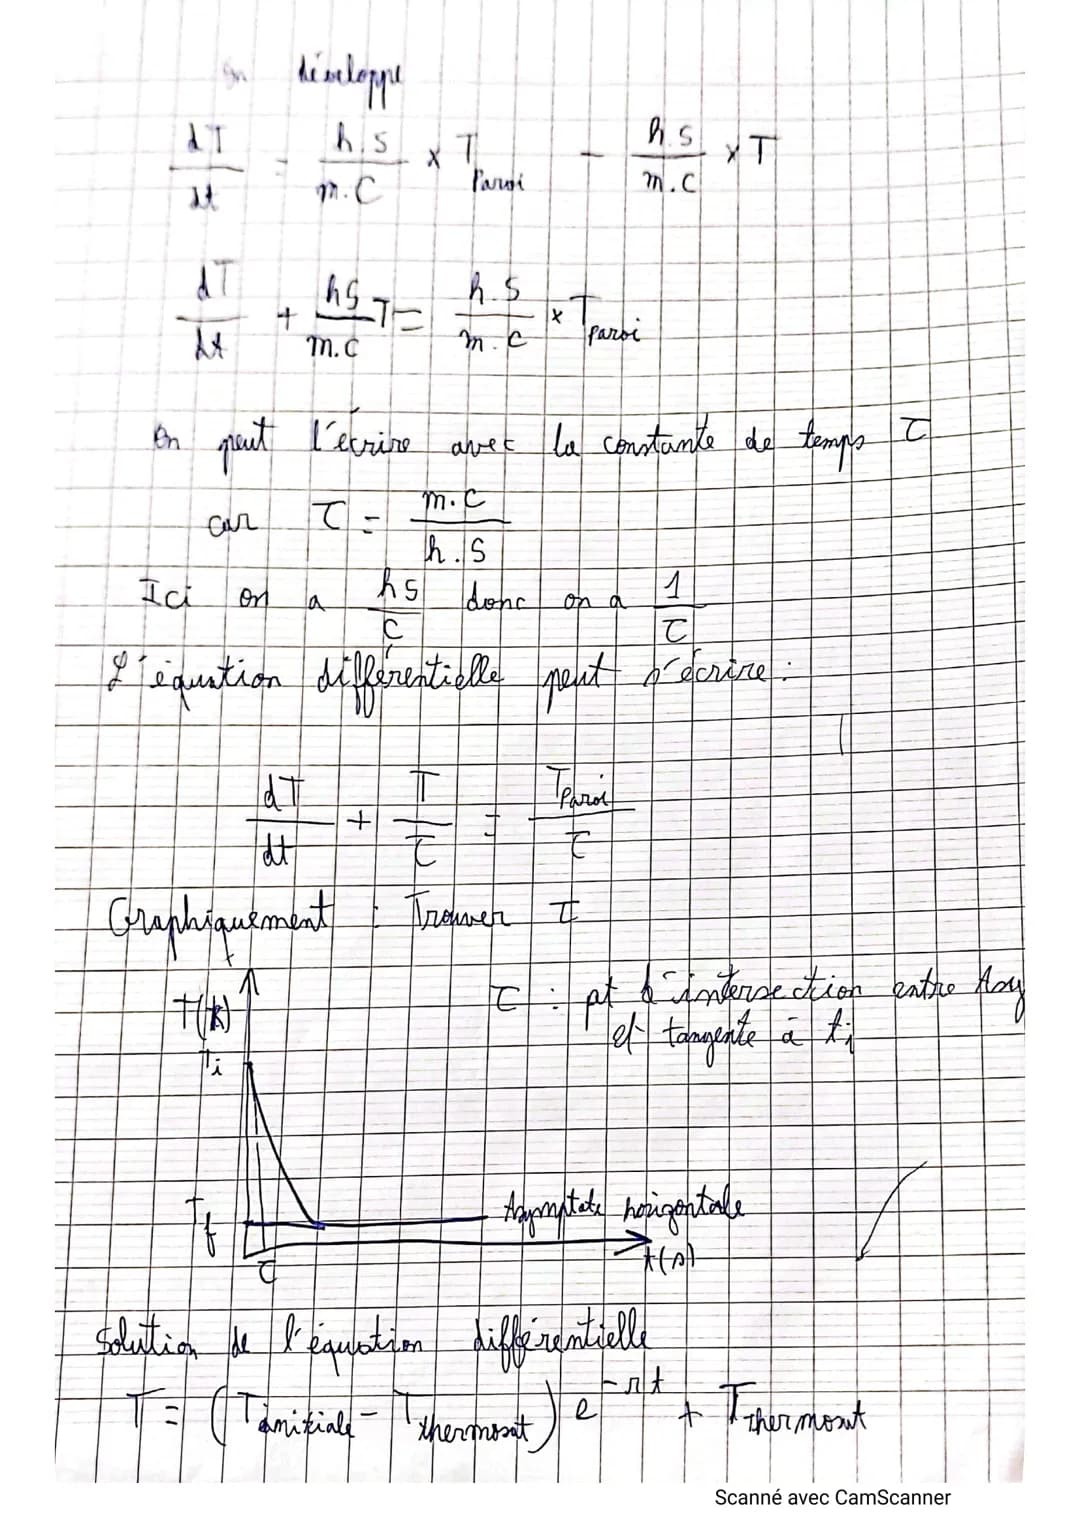 On développe
dT/dt = h.S/m.C × T Paroi - h.S/m.C × T
dT/dt + hS/m.C T = h.S/m.C × T paroi
On peut l'écrire avec la constante de temps τ
car τ = m.C/h.S
Ici on a hS/C donc on a 1/τ
L'équation différentielle peut s'écrire :
dT/dt + T/τ = T Paroi/τ
Graphiquement : Trouver τ
T(K)
τ : pt d'intersection entre Asy
et tangente à ti
Ti
Tf
Asymptote horizontale
t(s)
τ
Solution de l'équation différentielle
T = (T initiale - T thermosat) e^-rt + T Thermosat
Scanné avec CamScanner